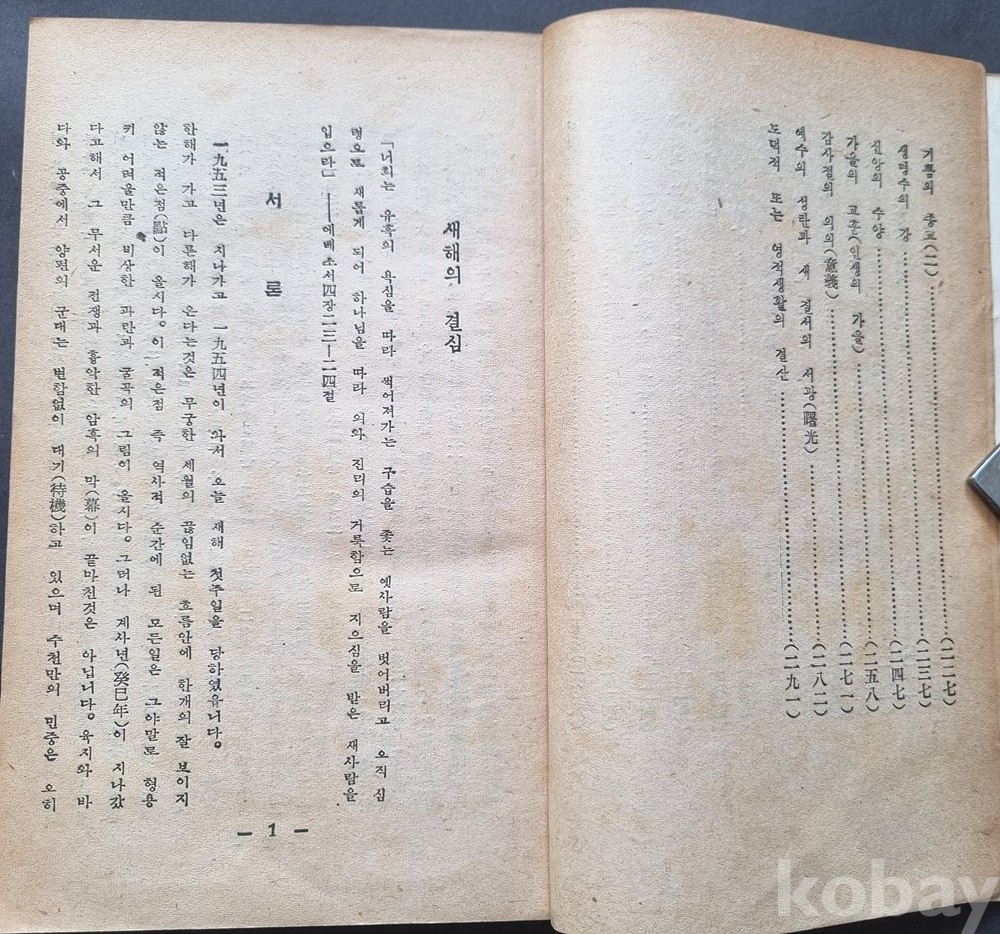 기쁨의 종교(二)……………(二二七)
생명수의 강……………(二三七)
신앙의 수양……………(二四七)
가을의 교훈(인생의 가을)……………(二五八)
감사절의 의의(意義)……………(二七一)
예수의 생탄과 새 질서의 서광(曙光)……………(二八二)
도덕적 또는 영적생활의 결산……………(二九一)
새해의 결심
「너희는 유혹의 욕심을 따라 썩어져가는 구습을 좇는 옛사람을 벗어버리고 오직 심
령으로 새롭게 되어 하나님을 따라 의와 진리의 거룩함으로 지으심을 받은 새사람을
입으라」――에베소서四장二三―二四절
서 론
一九五三년은 지나가고 一九五四년이 와서 오늘 새해 첫주일을 당하였읍니다。
한해가 가고 다른해가 온다는것은 무궁한 세월의 끊임없는 흐름안에 한개의 잘 보이지
않는 적은점(點)이 올시다。이 적은점 즉 역사적 순간에 된 모든일은 그야말로 형용
키 어려울만큼 비상한 파란과 굴곡의 그림이 올시다。그러나 계사년(癸巳年)이 지나갔
다고해서 그 무서운 전쟁과 흉악한 암흑의 막(幕)이 끝마친것은 아닙니다。육지와 바
다와 공중에서 양편의 군대는 변함없이 대기(待機)하고 있으며 수천만의 민중은 오히
― 1 ―
kobay